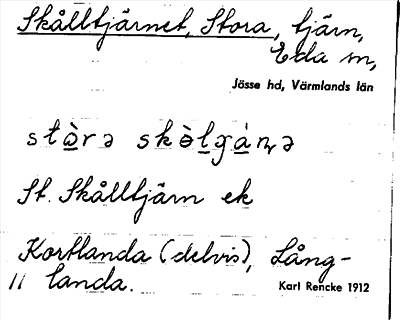 Skålltjärnet, Stora, tjärn,
Eda sn,
Jösse hd, Värmlands län
St. Skålltjärn ek
Kortlanda (delvis), Lång-
11 landa.
Karl Rencke 1912